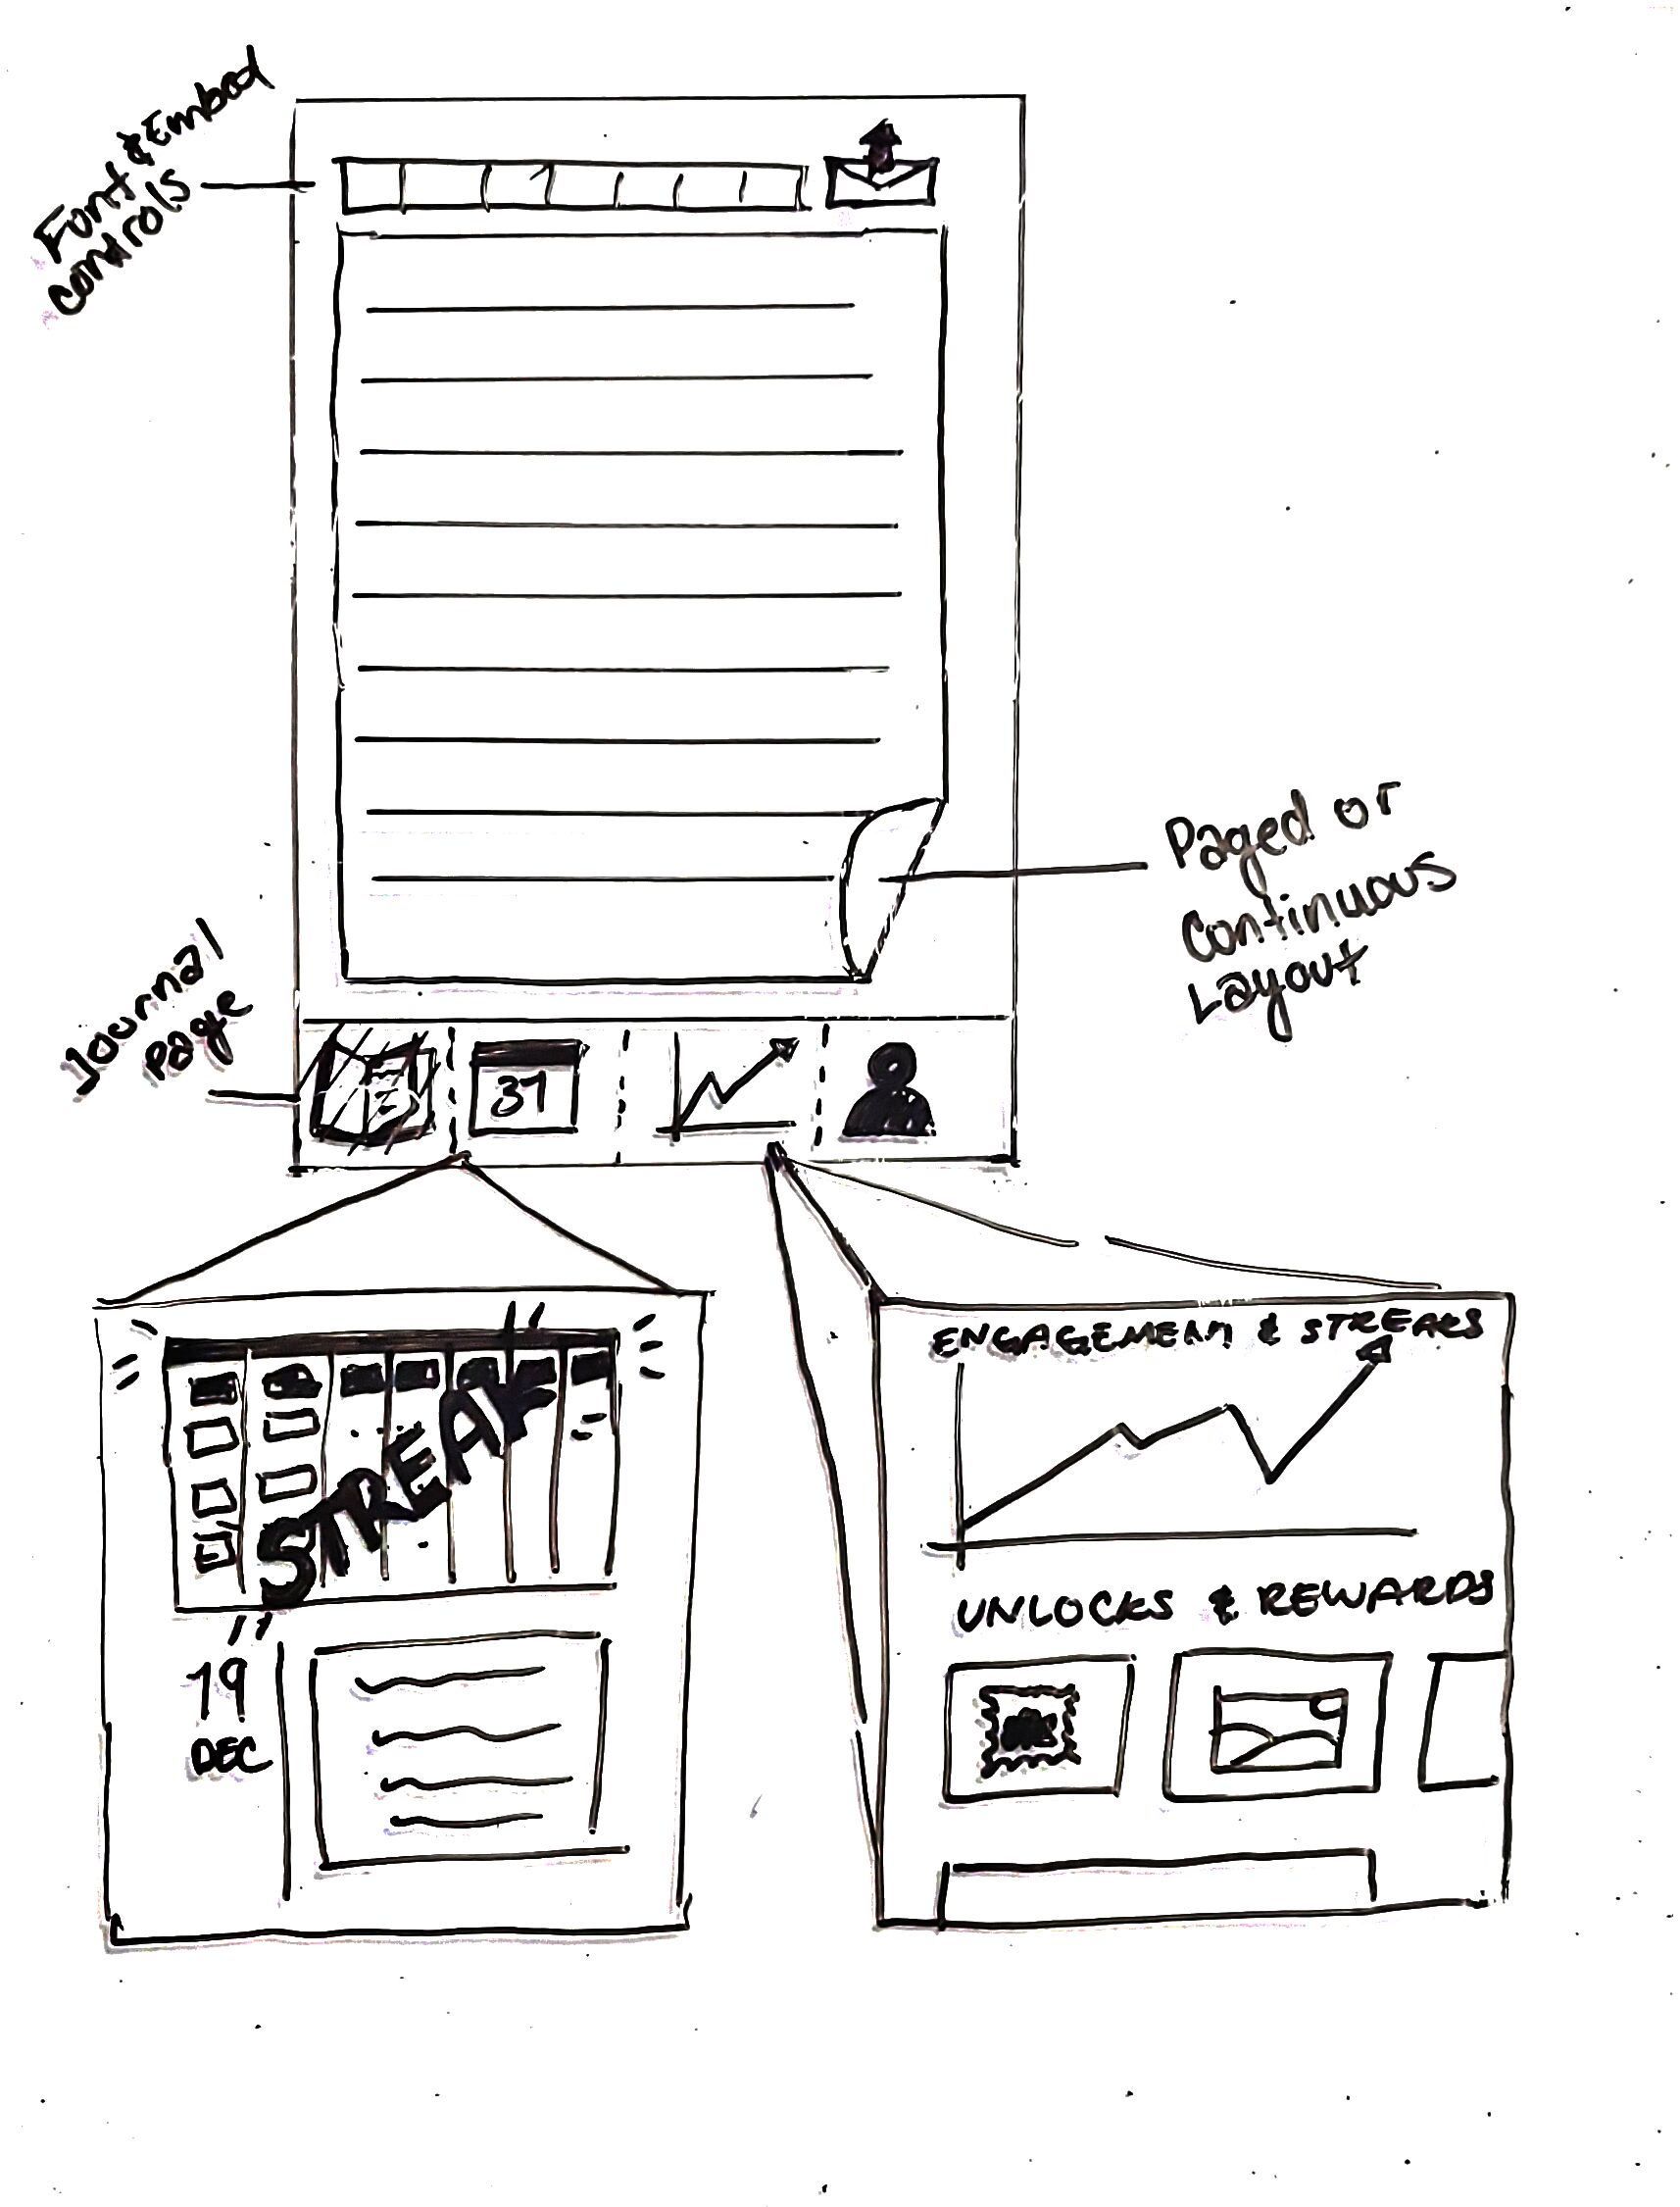 Font & Embed
controls
Paged or
Continuous
Layout
Journal
page
31
STREAK
19
DEC
ENGAGEMENT & STREAKS
UNLOCKS & REWARDS